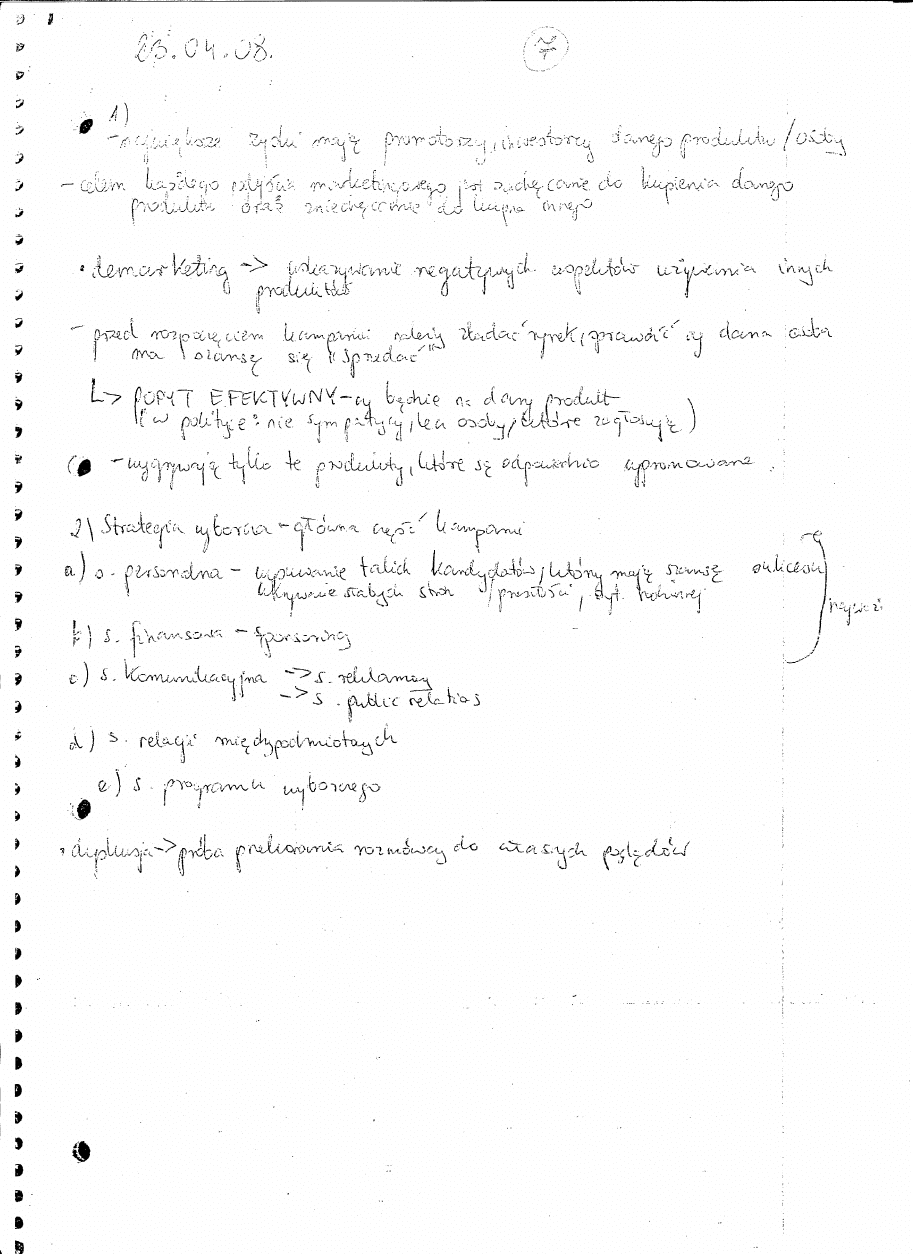 23.04.08.
7
1)
- największe zyski mają promotorzy, inwestorzy danego produktu / osoby
- celem każdego pójścia marketingowego jest zachęcanie do kupienia danego
produktu oraz zniechęcanie do kupna innego
• demarketing -> wskazywanie negatywnych aspektów używania innych
produktów
- przed rozpoczęciem kampanii należy zbadać rynek, sprawdzić czy dana osoba
ma szansę się "sprzedać"
L> POPYT EFEKTYWNY - czy będzie na dany produkt
(w polityce: nie sympatycy, lecz osoby, które zagłosują)
- wygrywają tylko te produkty, które są odpowiednio wypromowane.
2) Strategia wyborcza - główna część kampanii
a) s. personalna - wysuwanie takich kandydatów, który mają szansę sukcesu
ukrywanie słabych stron / przeszłości, syt. rodzinnej
b) s. finansowa - sponsoring
c) s. komunikacyjna -> s. reklamowy
-> s. public relatios
d) s. relacji międzypodmiotowych
e) s. programu wyborczego
• dyskusja -> próba przekonania rozmówcy do własnych poglądów